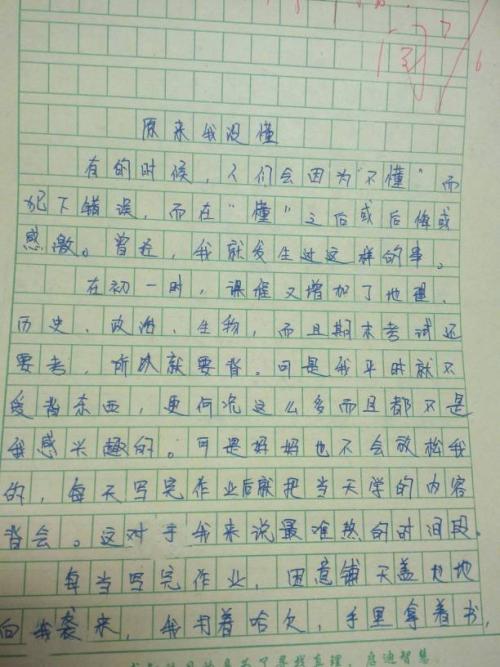 原来我没懂
有的时候，人们会因为“不懂”而
犯下错误，而在“懂”之后或后悔或
感激。曾经，我就发生过这样的事。
在初一时，课程又增加了地理、
历史、政治、生物，而且期末考试还
要考，所以就要背。可是我平时就不
爱背东西，更何况这么多而且都不是
我感兴趣的。可是妈妈也不会放松我
的，每天写完作业后就把当天学的内容
背会。这对于我来说最难熬的时间段。
每当写完作业，困意铺天盖地地
向我袭来，我打着哈欠，手里拿着书，